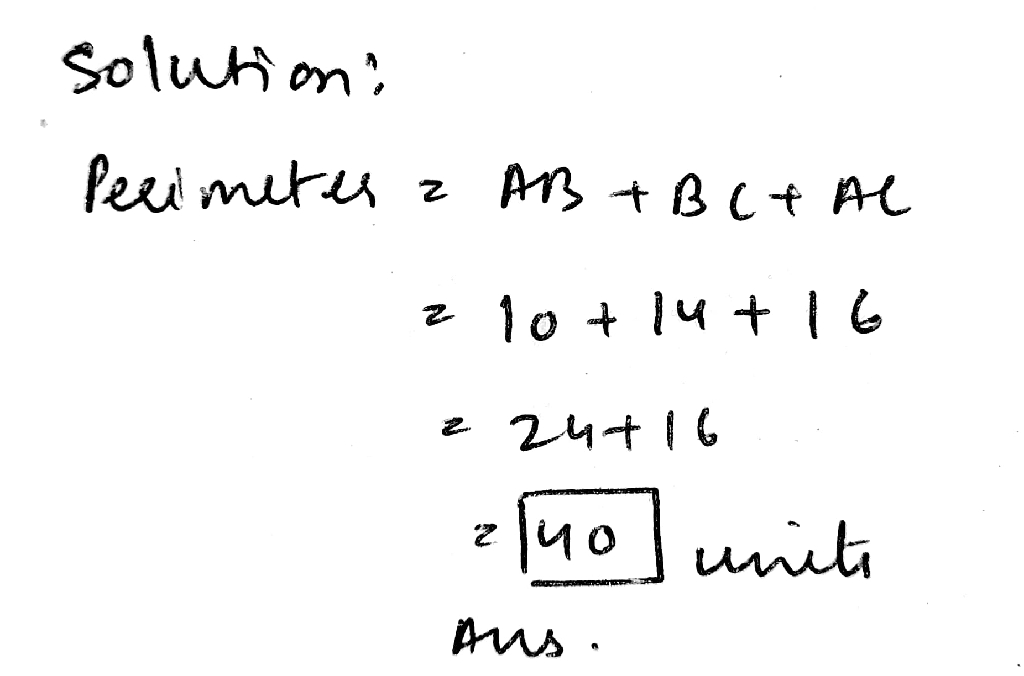 Solution:
Perimeter = AB + BC + AC
= 10 + 14 + 16
= 24 + 16
= 40 units
Ans.